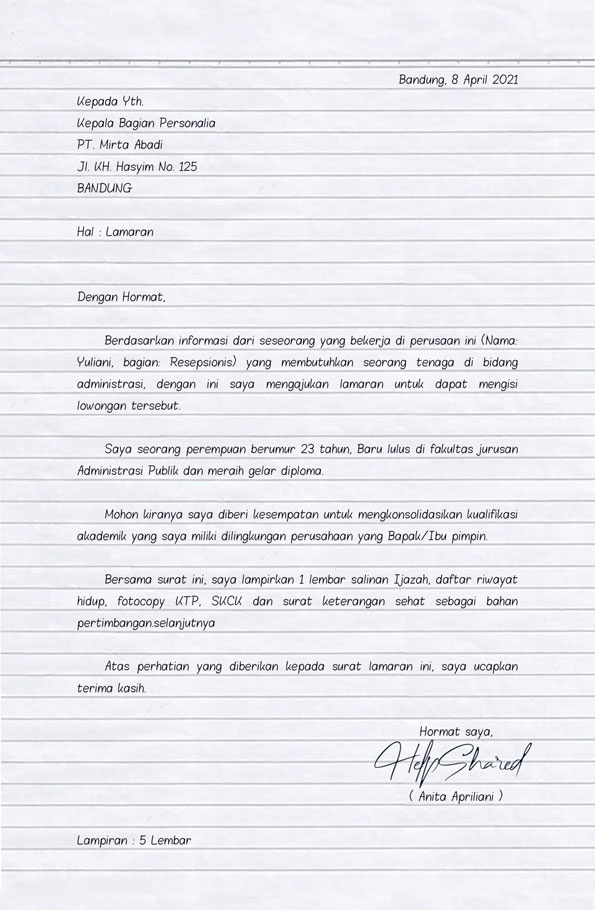 Bandung, 8 April 2021
Kepada Yth.
Kepala Bagian Personalia
PT. Mirta Abadi
Jl. KH. Hasyim No. 125
BANDUNG
Hal : Lamaran
Dengan Hormat,
Berdasarkan informasi dari seseorang yang bekerja di perusaan ini (Nama:
Yuliani, bagian: Resepsionis) yang membutuhkan seorang tenaga di bidang
administrasi, dengan ini saya mengajukan lamaran untuk dapat mengisi
lowongan tersebut.
Saya seorang perempuan berumur 23 tahun, Baru lulus di fakultas jurusan
Administrasi Publik dan meraih gelar diploma.
Mohon kiranya saya diberi kesempatan untuk mengkonsolidasikan kualifikasi
akademik yang saya miliki dilingkungan perusahaan yang Bapak/Ibu pimpin.
Bersama surat ini, saya lampirkan 1 lembar salinan Ijazah, daftar riwayat
hidup, fotocopy KTP, SKCK dan surat keterangan sehat sebagai bahan
pertimbangan.selanjutnya
Atas perhatian yang diberikan kepada surat lamaran ini, saya ucapkan
terima kasih.
Hormat saya,
HelpShared
( Anita Apriliani )
Lampiran : 5 Lembar